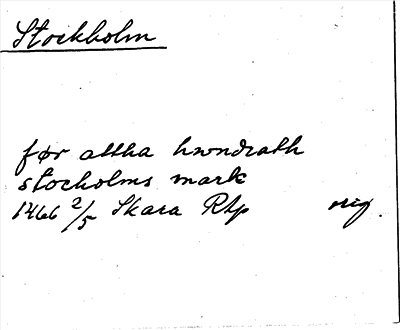 Stockholm
før attha hwndrath
stocholms mark
1466 2/5 Skara Rtp orig.